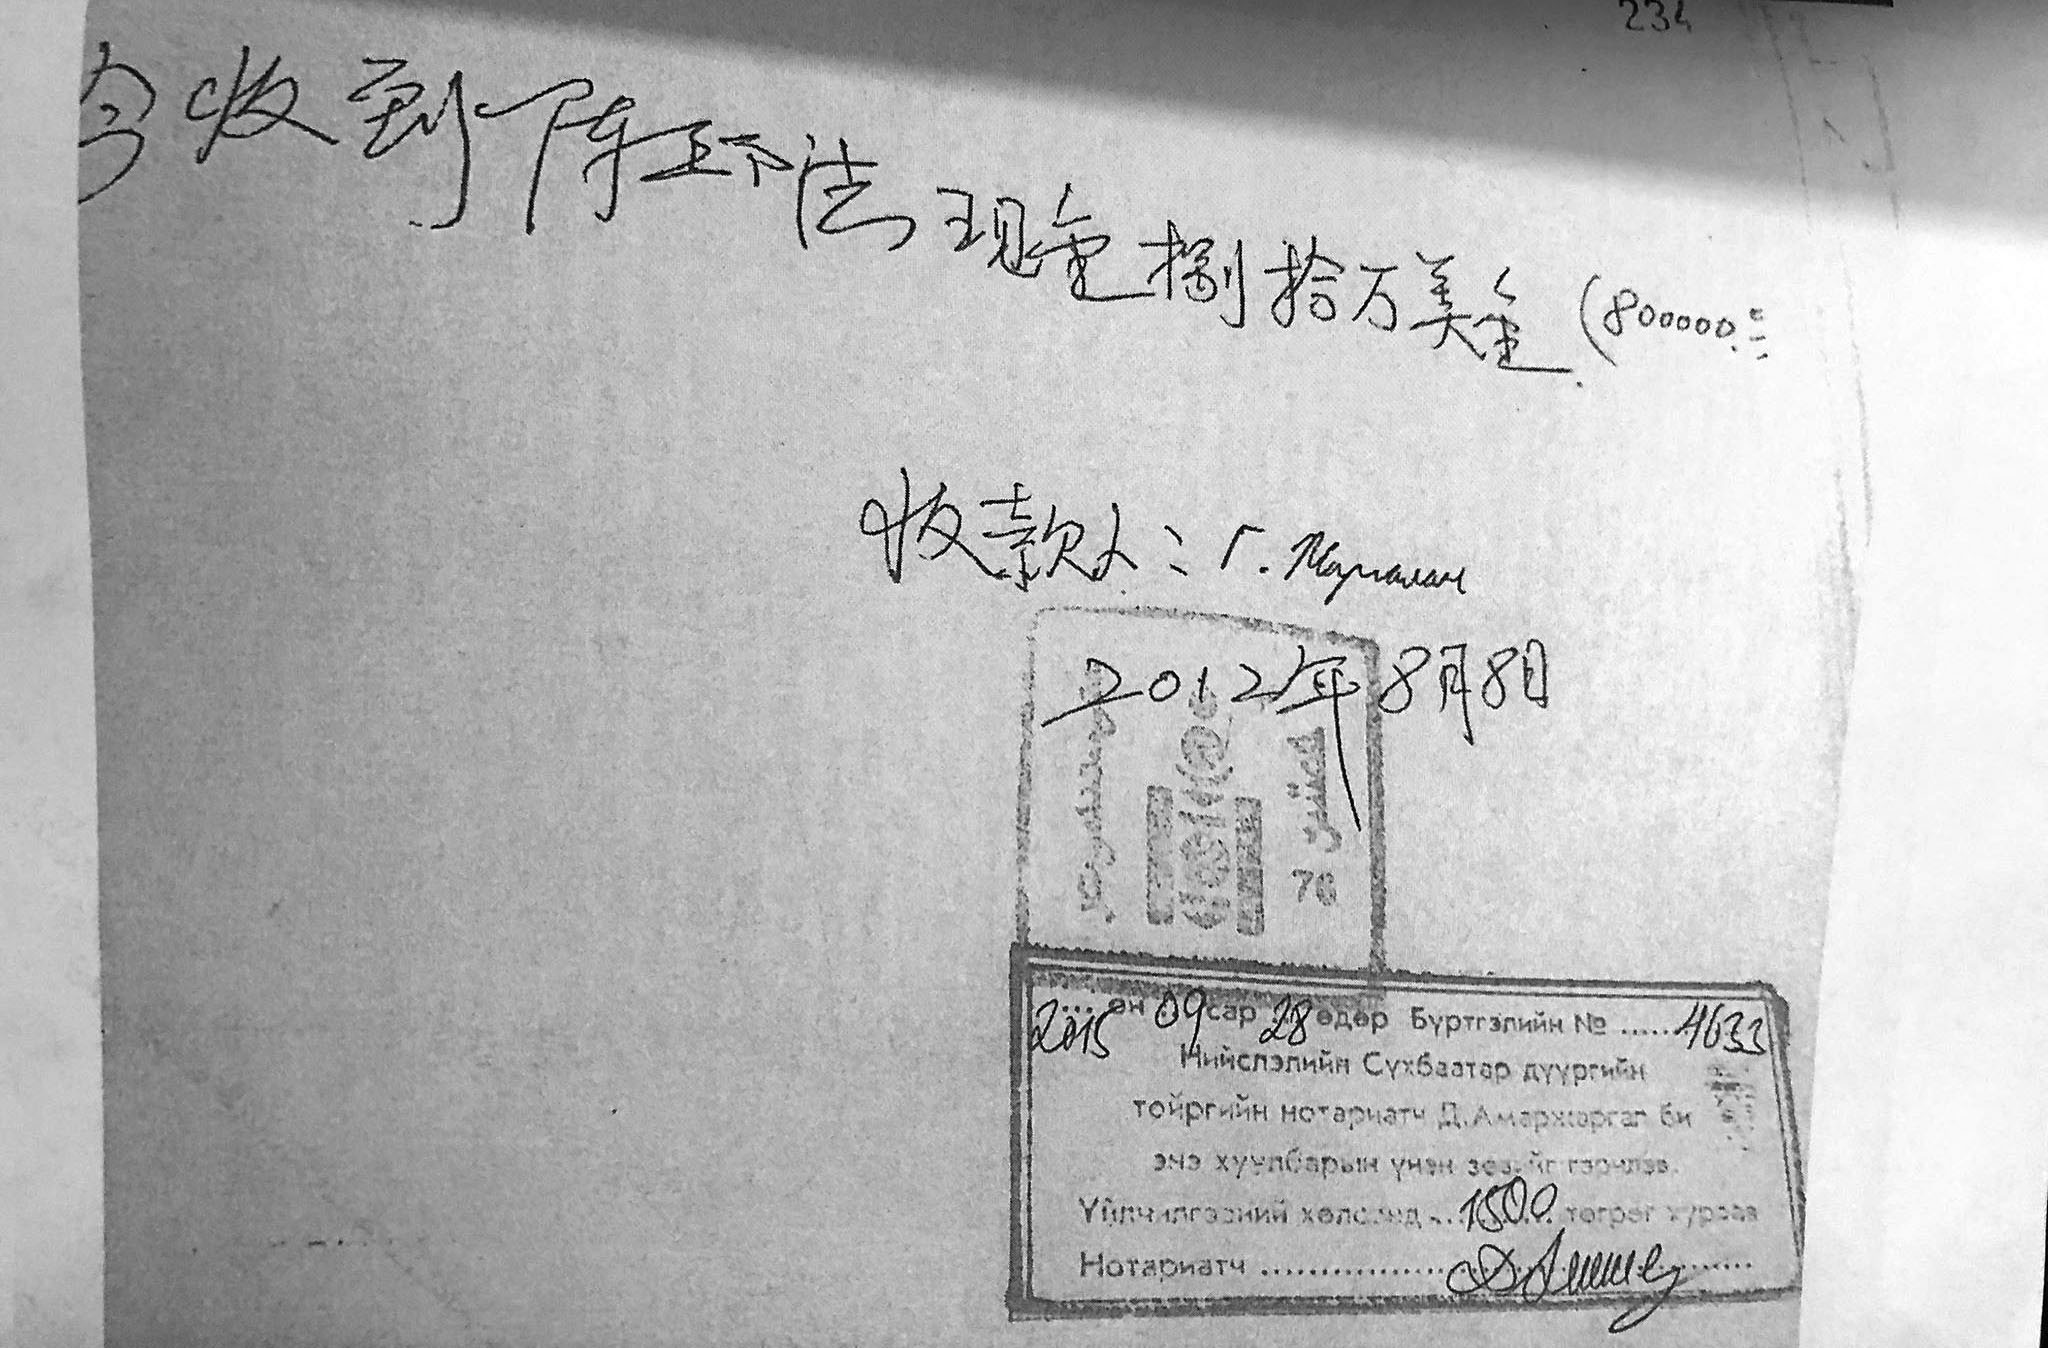 234
今收到陈环法现金捌拾万美金(800000.
收款人: Г. Маргалан
2012年8月8日
76
2015 он 09 сар 28 өдөр Бүртгэлийн № ..... 4633
Нийслэлийн Сүхбаатар дүүргийн
тойргийн нотариатч Д.Амаржаргал би
энэ хуулбарын үнэн зөвийг гэрчлэв.
Үйлчилгээний хөлсөнд ... 1500 төгрөг хураав
Нотариатч